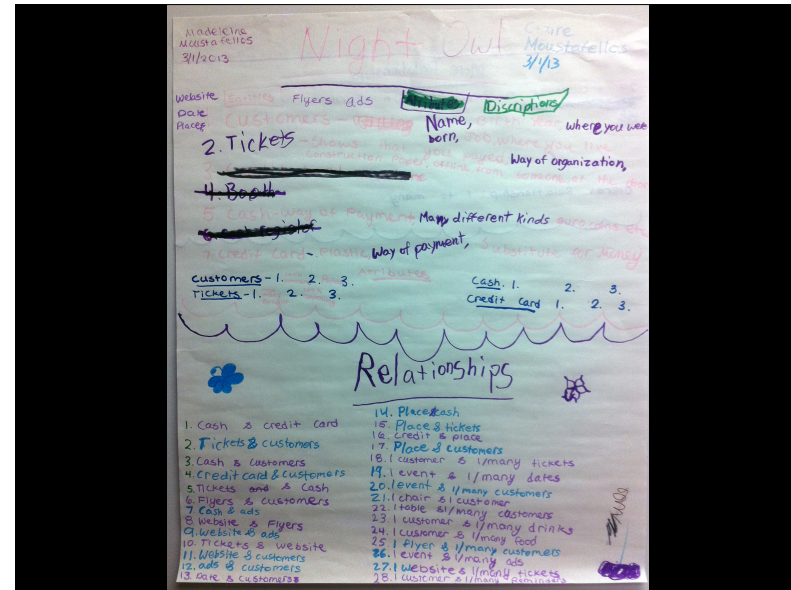 Madeleine
Moustafellos
3/1/2013
Night Owl
Claire
Moustafellos
3/1/13
Website
Date
Places
Entities
Flyers ads
Attributes
Discriptions
Customers -
Name,
born,
where you live
where you wee
2. Tickets
- Shows that you payed,
Way of organization,
3.
4. Booth
5. Cash - way of payment
Many different kinds
6. Cash register
7. Credit Card - Plastic
Way of payment,
Substitute for Money
Attributes
Customers - 1. 2. 3.
Tickets - 1. 2. 3.
Cash. 1. 2. 3.
Credit card 1. 2. 3.
Relationships
1. Cash & credit card
2. Tickets & customers
3. Cash & customers
4. Credit card & customers
5. Tickets and & Cash
6. Flyers & customers
7 Cash & ads
8 Website & Flyers
9. Website & ads
10. Tickets & website
11. Website & customers
12. ads & customers
13. Date & customers
14. Place & cash
15. Place & tickets
16. Credit & place
17. Place & customers
18. 1 customer & 1/many tickets
19. 1 event & 1/many dates
20. 1 event & 1/many customers
21. 1 chair & 1 customer
22. 1 table & 1/many customers
23. 1 customer & 1/many drinks
24. 1 customer & 1/many food
25 1 flyer & 1/many customers
26. 1 event & 1/many ads
27. 1 website & 1/many tickets
28. 1 customer & 1/many Reminders